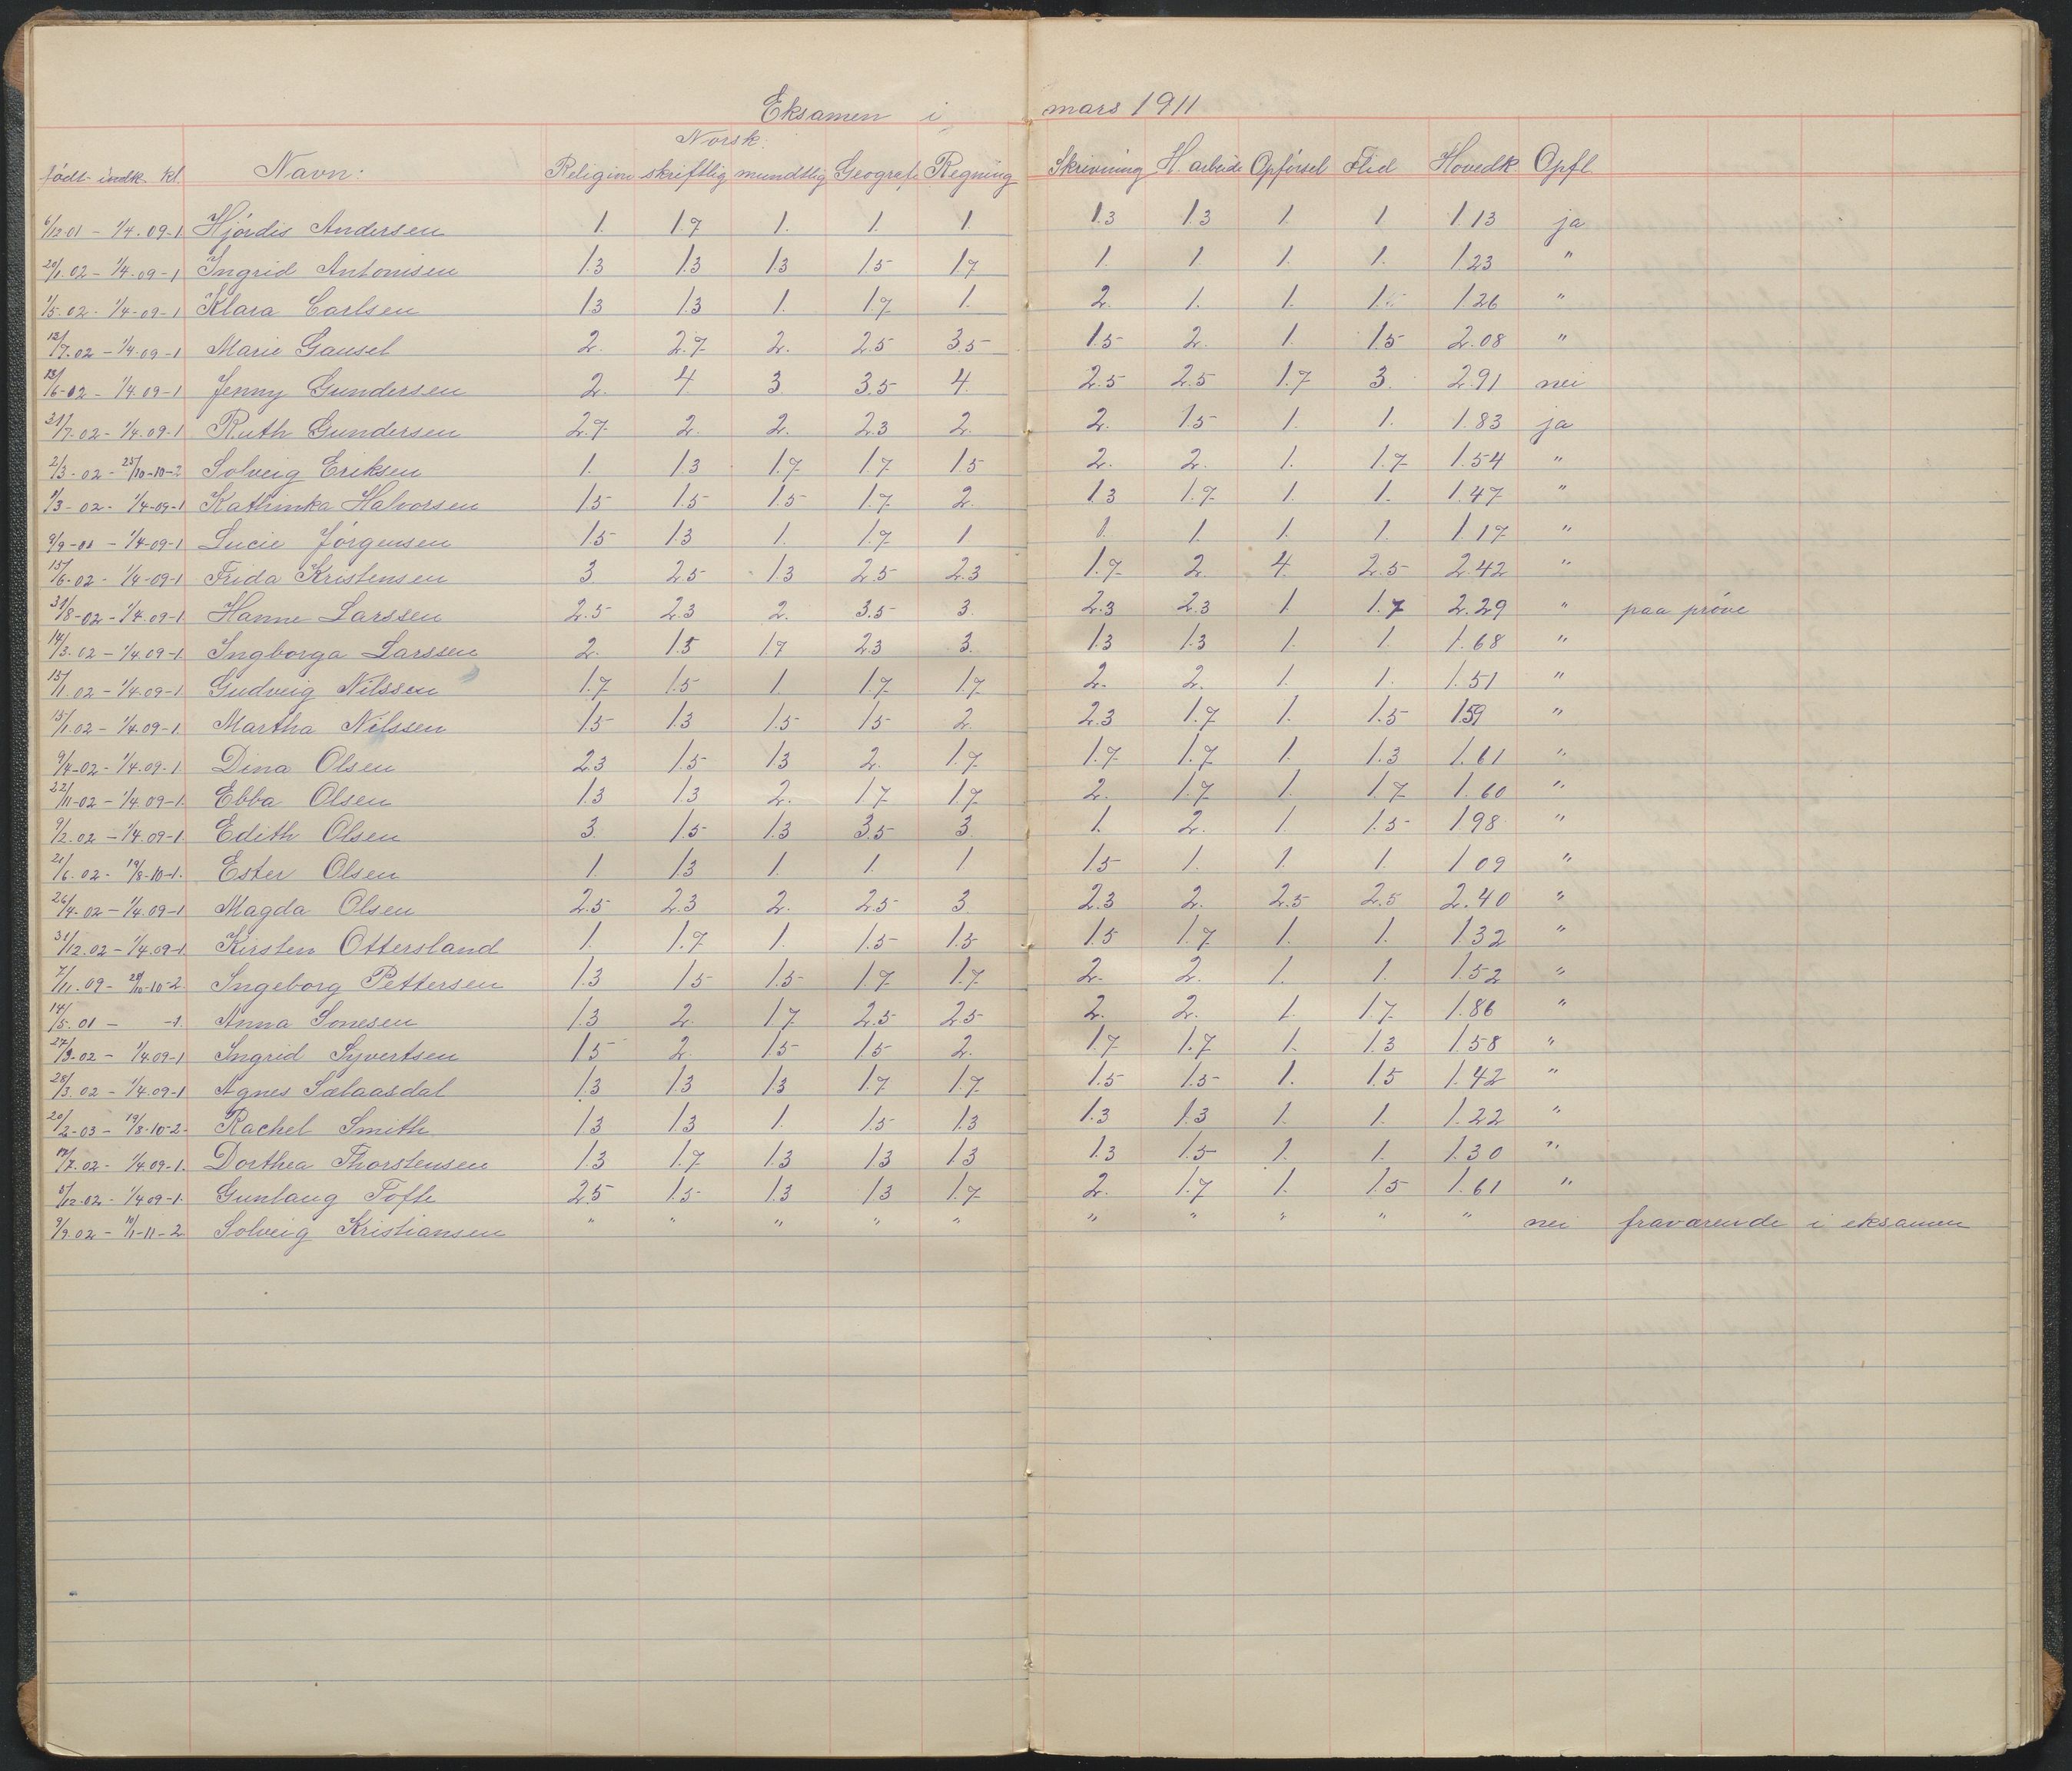 Eksamen i mars 1911
Norsk.
født indk. kl. Navn: Religion skriftlig mundtlig Geografi Regning Skrivning H. arbeide Opførsel Flid Hovedk Opfl
6/12 01 - 1/4. 09-1 Hjørdis Andersen 1. 1.7 1. 1. 1. 1.3 1.3 1. 1 1.13 ja
20/1. 02 - 1/4. 09-1 Ingrid Antonisen 1.3 1.3 1.3 1.5 1.7 1. 1 1. 1. 1.23 "
1/5. 02 - 1/4-09-1 Klara Carlsen 1.3 1.3 1. 1.7 1. 2. 1. 1. 1. 1.26 "
12/7. 02 - 1/4. 09-1 Marie Gausel 2. 2.7 2. 2.5 3.5 1.5 2. 1. 1.5 2.08 "
13/6-02 - 1/4. 09-1 Jenny Gundersen 2. 4 3 3.5 4. 2.5 2.5 1.7 3. 2.91 nei
31/7-02 - 1/4. 09-1 Ruth Gundersen 2.7 2. 2. 2.3 2. 2. 1.5 1. 1. 1.83 ja
2/3-02 - 25/10-10-2 Solveig Eriksen 1. 1.3 1.7 1.7 1.5 2. 2. 1. 1.7 1.54 "
9/3-02 - 1/4-09-1 Kathinka Halvorsen 1.5 1.5 1.5 1.7 2. 1.3 1.7 1. 1. 1.47 "
9/9-01 - 1/4-09-1 Lucie Jørgensen 1.5 1.3 1. 1.7 1 1. 1. 1. 1. 1.17 "
15/6-02 - 1/4-09-1 Frida Kristensen 3. 2.5 1.3 2.5 2.3 1.7 2. 4. 2.5 2.42 "
31/8-02 - 1/4. 09-1 Hanne Larssen 2.5 2.3 2. 3.5 3. 2.3 2.3 1. 1.7 2.29 " paa prøve
14/3. 02 - 1/4 09-1. Ingborga Larssen 2. 1.5 1.7 2.3 3. 1.3 1.3 1. 1. 1.68 "
15/1. 02 - 1/4. 09-1 Gudveig Nilssen 1.7 1.5 1. 1.7 1.7 2. 2. 1. 1. 1.51 "
15/1. 02 - 1/4. 09-1. Martha Nilssen 1.5 1.3 1.5 1.5 2. 2.3 1.7 1. 1.5 1.59 "
9/4-02 - 1/4. 09-1 Dina Olsen 2.3 1.5 1.3 2. 1.7 1.7 1.7 1. 1.3 1.61 "
22/11-02 - 1/4 09-1. Ebba Olsen 1.3 1.3 2. 1.7 1.7 2. 1.7 1. 1.7 1.60 "
9/2. 02 - 1/4. 09-1. Edith Olsen 3. 1.5 1.3 3.5 3. 1. 2. 1. 1.5 1.98 "
21/6. 02 - 19/8-10-1. Ester Olsen 1. 1.3 1. 1. 1. 1.5 1. 1. 1. 1.09 "
26/4. 02 - 1/4. 09-1 Magda Olsen 2.5 2.3 2. 2.5 3. 2.3 2. 2.5 2.5 2.40 "
31/12. 02 - 1/4. 09-1. Kirsten Ottersland 1. 1.7 1. 1.5 1.5 1.5 1.7 1. 1. 1.32 "
7/11. 09 - 28/10-10-2. Ingeborg Pettersen 1.3 1.5 1.5 1.7 1.7 2. 2. 1. 1. 1.52 "
14/5. 01 - -1. Anna Sonesen 1.3 2. 1.7 2.5 2.5 2. 2. 1. 1.7 1.86 "
27/3-02 - 1/4. 09-1 Ingrid Syvertsen 1.5 2. 1.5 1.5 2. 1.7 1.7 1. 1.3 1.58 "
28/3. 02 - 1/4. 09-1 Agnes Sælaasdal 1.3 1.3 1.3 1.7 1.7 1.5 1.5 1. 1.5 1.42 "
20/2-03 - 19/8-10-2. Rachel Smith 1.3 1.3 1. 1.5 1.3 1.3 1.3 1. 1. 1.22 "
12/7. 02 - 1/4. 09-1. Dorthea Thorstensen 1.3 1.7 1.3 1.3 1.3 1.3 1.5 1. 1. 1.30 "
8/12. 02 - 1/4 09-1. Gunlaug Tofte 2.5 1.5 1.3 1.3 1.7 2. 1.7 1. 1.5 1.61 "
9/9. 02 - 11-2 Solveig Kristiansen " " " " " " " " " " nei fraværende i eksamen